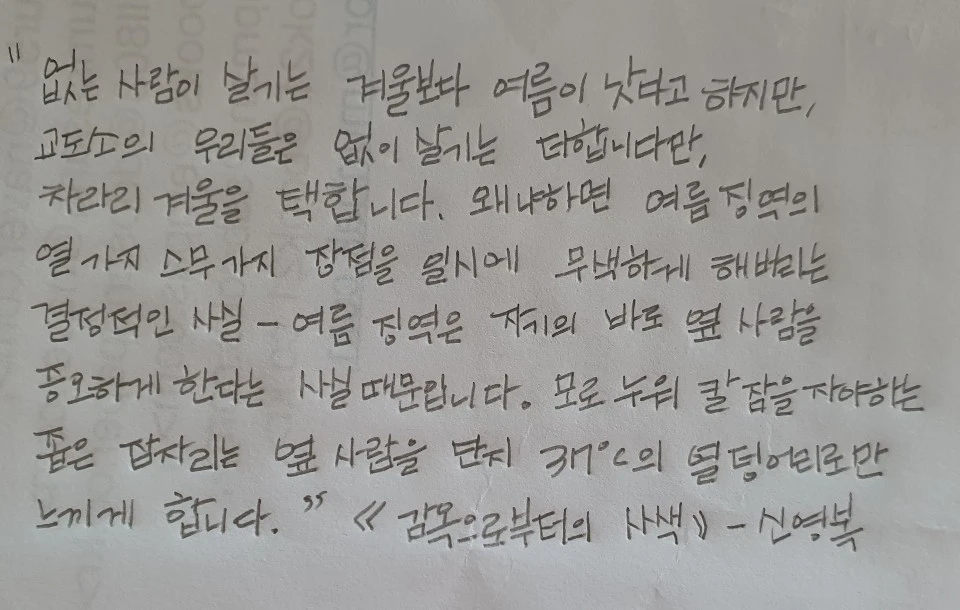 "없는 사람이 살기는 겨울보다 여름이 낫다고 하지만,
교도소의 우리들은 없이 살기는 더합니다만,
차라리 겨울을 택합니다. 왜냐하면 여름 징역의
열 가지 스무 가지 장점을 일시에 무색하게 해버리는
결정적인 사실 - 여름 징역은 자기의 바로 옆 사람을
증오하게 한다는 사실 때문입니다. 모로 누워 칼잠을 자야하는
좁은 잠자리는 옆 사람을 단지 37℃의 열덩어리로만
느끼게 합니다." 《감옥으로부터의 사색》 - 신영복